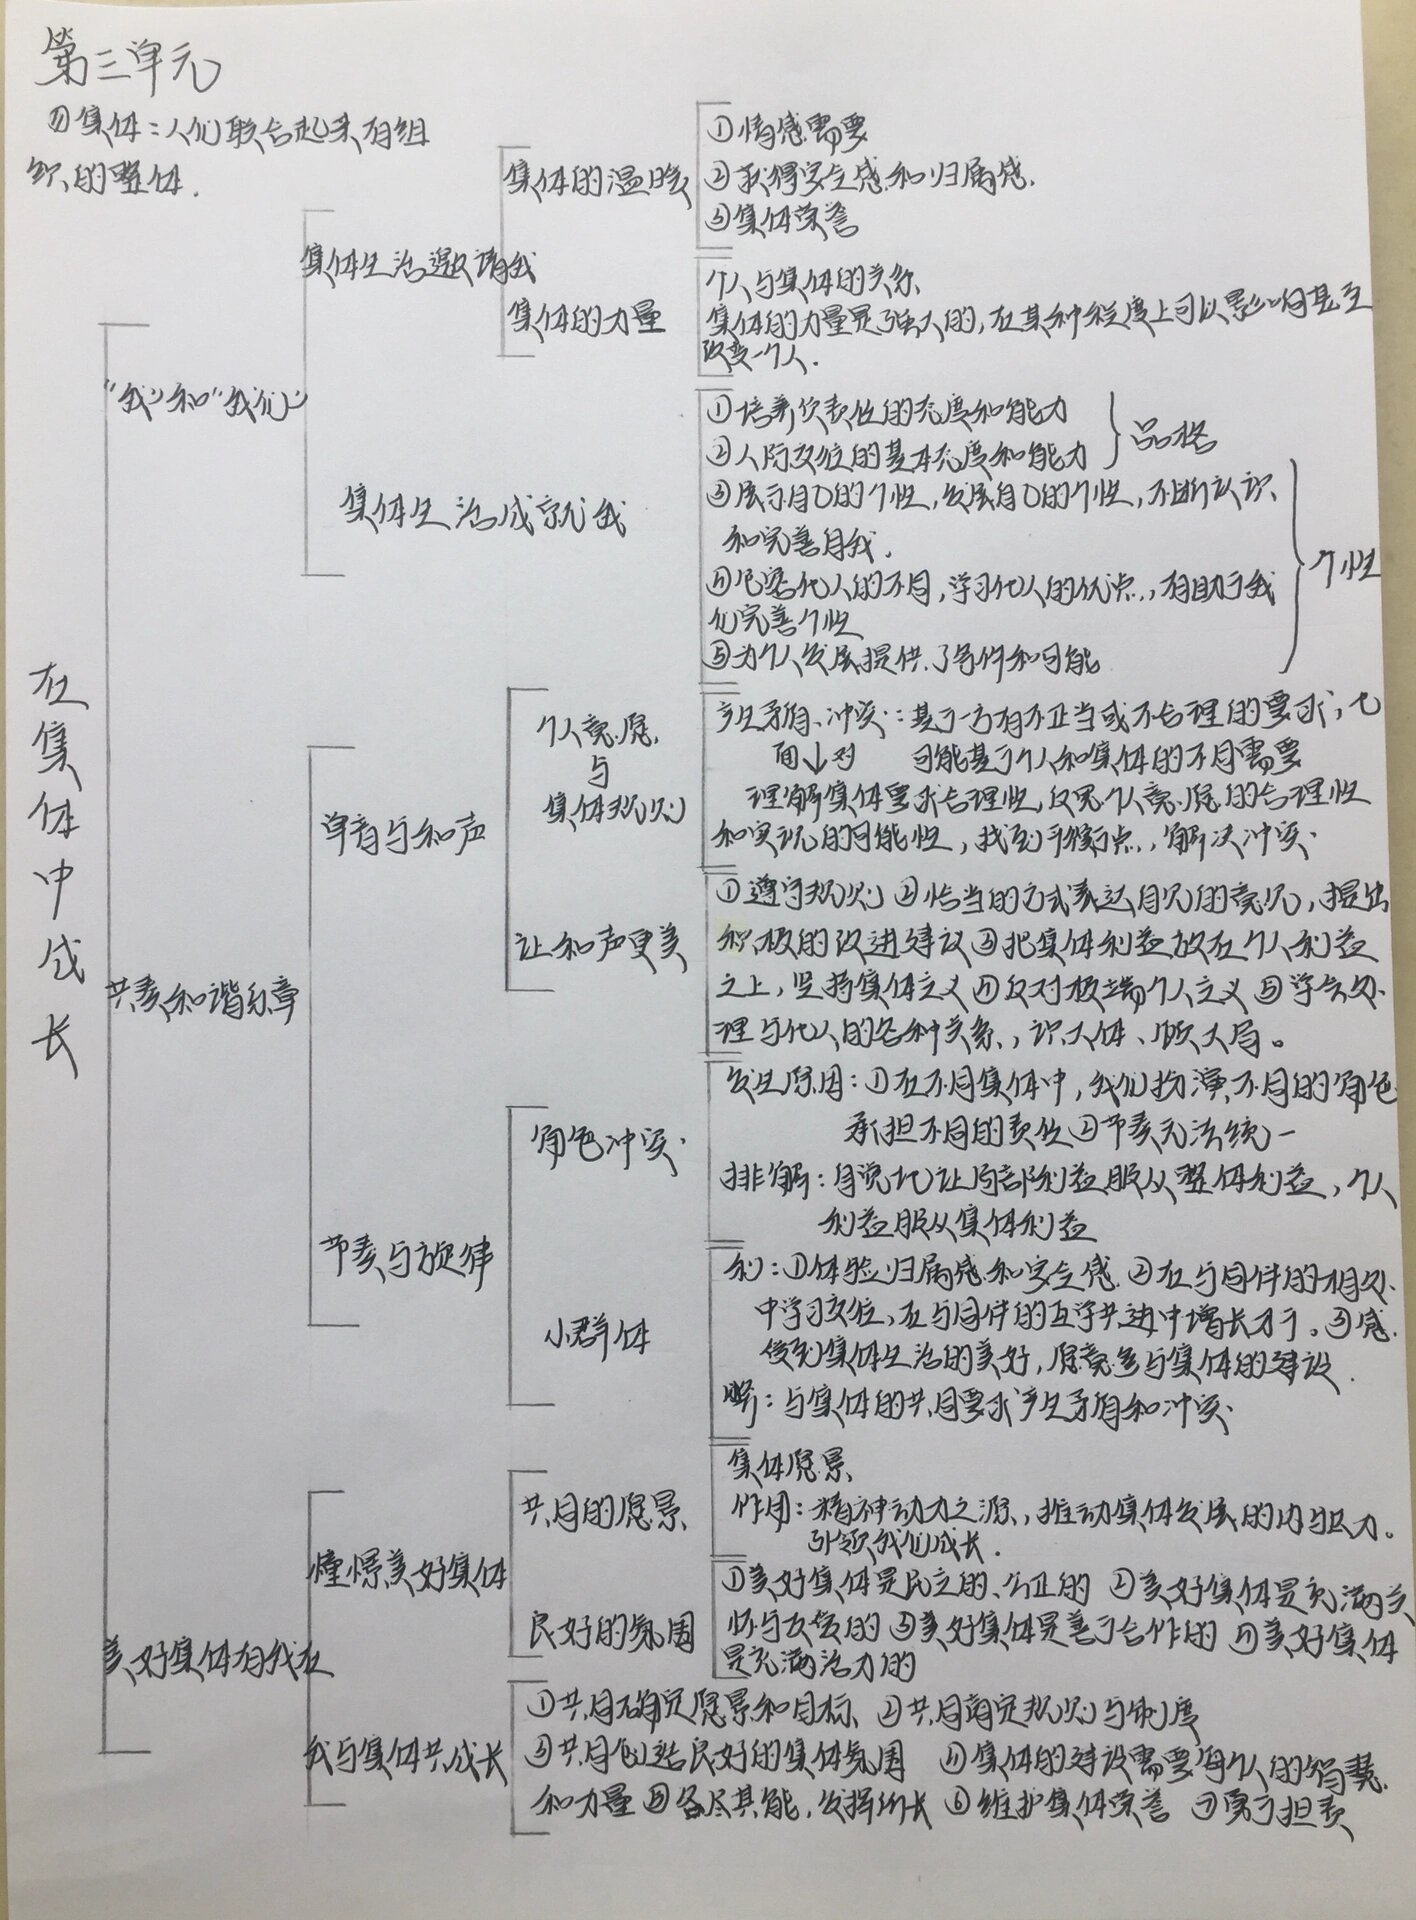 第三单元
集体:人们联合起来有组
织的整体.
在集体中成长
"我"和"我们"
集体生活邀请我
集体的温暖
①情感需要
②获得安全感和归属感.
③集体荣誉
集体的力量
个人与集体的关系
集体的力量是强大的,在某种程度上可以影响甚至
改变一个人.
集体生活成就我
①培养负责任的态度和能力
②人际交往的基本态度和能力
品格
③展示自己的个性,发展自己的个性,不断认识
和完善自我.
④包容他人的不同,学习他人的优点,有助于我
们完善个性
⑤为个人发展提供了条件和可能
个性
共奏和谐乐章
单音与和声
个人意愿
与
集体规则
产生矛盾、冲突:基于一方有不正当或不合理的要求,也
面↓对 可能基于个人和集体的不同需要
理解集体要求合理性,反思个人意愿的合理性
和实现的可能性,找到平衡点,解决冲突
让和声更美
①遵守规则 ②恰当的方式表达自己的意见,提出
积极的改进建议 ③把集体利益放在个人利益
之上,坚持集体主义 ④反对极端个人主义 ⑤学会处
理与他人的各种关系,识大体、顾大局。
节奏与旋律
角色冲突
发生原因:①在不同集体中,我们扮演不同的角色
承担不同的责任 ②节奏无法统一
排解:自觉地让局部利益服从整体利益,个人
利益服从集体利益
小群体
利:①体验归属感和安全感 ②在与同伴的相处
中学习交往,在与同伴的互学共进中增长才干。③感
受到集体生活的美好,愿意参与集体的建设.
弊:与集体的共同要求产生矛盾和冲突
美好集体有我在
憧憬美好集体
共同的愿景
集体愿景
作用:精神动力之源,推动集体发展的内驱力。
引领我们成长.
良好的氛围
①美好集体是民主的、公正的 ②美好集体是充满关
怀与友爱的 ③美好集体是善于合作的 ④美好集体
是充满活力的
我与集体共成长
①共同确定愿景和目标 ②共同商定规则与制度
③共同创造良好的集体氛围 ④集体的建设需要每个人的智慧
和力量 ⑤各尽其能,发挥所长 ⑥维护集体荣誉 ⑦勇于担责